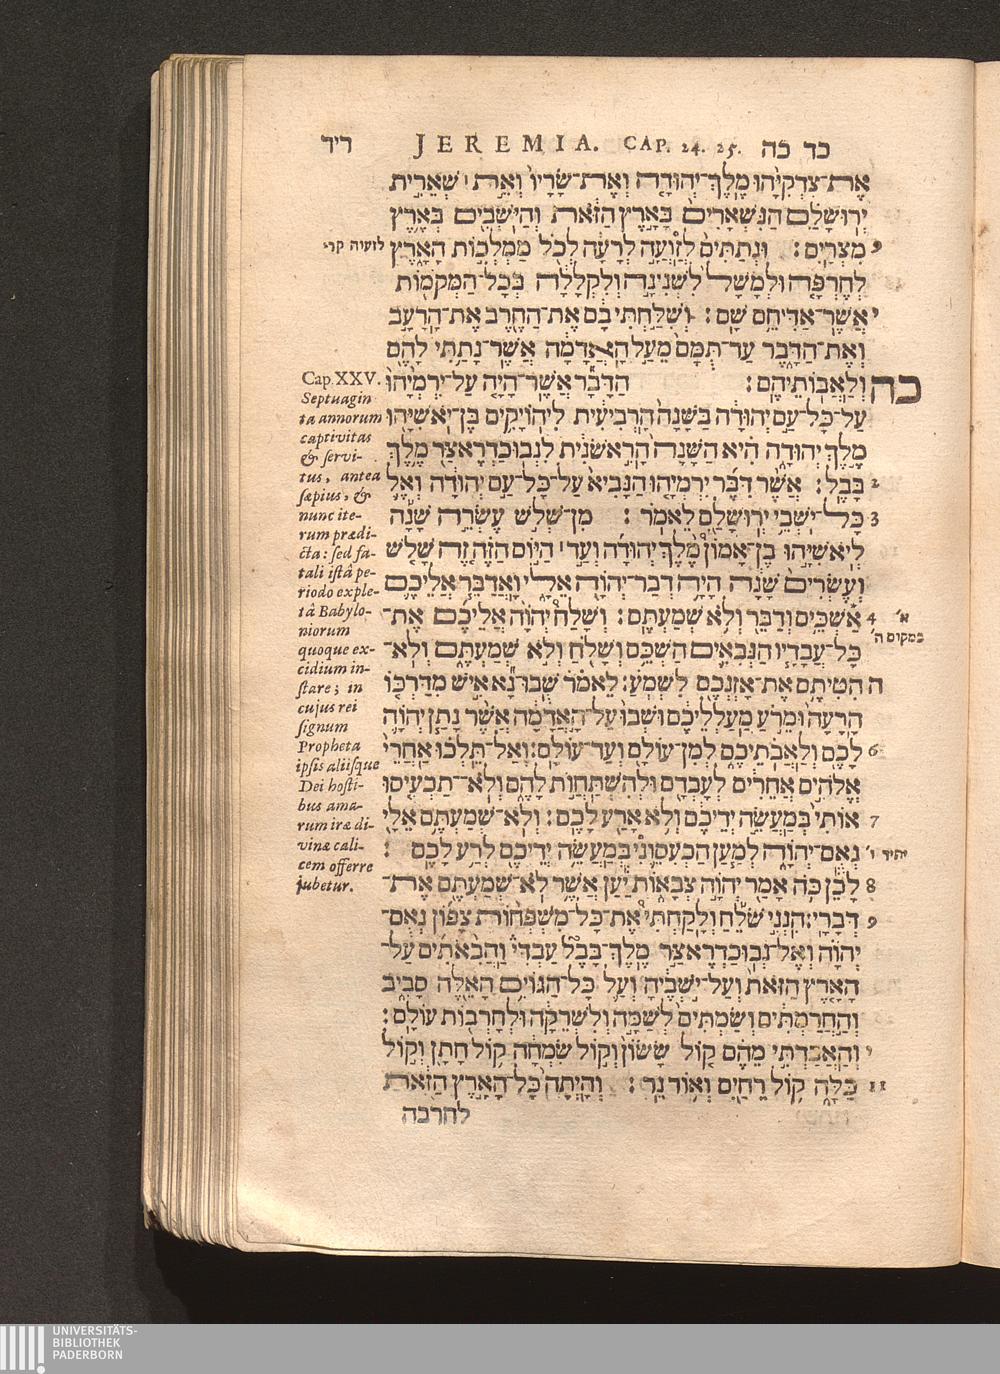 ריד JEREMIA. CAP. 24. 25. כד כה
אֶת־צִדְקִיָּהוּ מֶלֶךְ־יְהוּדָה וְאֶת־שָׂרָיו וְאֵת ׀ שְׁאֵרִית
יְרוּשָׁלִַם הַנִּשְׁאָרִים בָּאָרֶץ הַזֹּאת וְהַיֹּשְׁבִים בְּאֶרֶץ
מִצְרָיִם׃ וּנְתַתִּים לְזַוֲעָה לְרָעָה לְכֹל מַמְלְכוֹת הָאָרֶץ
לזעוה קרי
לְחֶרְפָּה וּלְמָשָׁל לִשְׁנִינָה וְלִקְלָלָה בְּכָל־הַמְּקֹמוֹת
י אֲשֶׁר־אַדִּיחֵם שָׁם׃ וְשִׁלַּחְתִּי בָם אֶת־הַחֶרֶב אֶת־הָרָעָב
וְאֶת־הַדָּבֶר עַד־תֻּמָּם מֵעַל הָאֲדָמָה אֲשֶׁר־נָתַתִּי לָהֶם
כה וְלַאֲבוֹתֵיהֶם׃ הַדָּבָר אֲשֶׁר־הָיָה עַל־יִרְמְיָהוּ
עַל־כָּל־עַם יְהוּדָה בַּשָּׁנָה הָרְבִיעִית לִיהוֹיָקִים בֶּן־יֹאשִׁיָּהוּ
מֶלֶךְ יְהוּדָה הִיא הַשָּׁנָה הָרִאשֹׁנִית לִנְבוּכַדְרֶאצַּר מֶלֶךְ
2 בָּבֶל׃ אֲשֶׁר דִּבֶּר יִרְמְיָהוּ הַנָּבִיא עַל־כָּל־עַם יְהוּדָה וְאֶל
3 כָּל־יֹשְׁבֵי יְרוּשָׁלִַם לֵאמֹר׃ מִן־שְׁלֹשׁ עֶשְׂרֵה שָׁנָה
לְיֹאשִׁיָּהוּ בֶן־אָמוֹן מֶלֶךְ יְהוּדָה וְעַד ׀ הַיּוֹם הַזֶּה זֶה שָׁלֹשׁ
וְעֶשְׂרִים שָׁנָה הָיָה דְבַר־יְהוָה אֵלָי וָאֲדַבֵּר אֲלֵיכֶם
4 אַשְׁכֵּים וְדַבֵּר וְלֹא שְׁמַעְתֶּם׃ וְשָׁלַח יְהוָה אֲלֵיכֶם אֶת־
א'
במקום ה'
כָּל־עֲבָדָיו הַנְּבִאִים הַשְׁכֵּם וְשָׁלֹחַ וְלֹא שְׁמַעְתֶּם וְלֹא־
ה הִטִּיתֶם אֶת־אָזְנְכֶם לִשְׁמֹעַ׃ לֵאמֹר שׁוּבוּ־נָא אִישׁ מִדַּרְכּוֹ
הָרָעָה וּמֵרֹעַ מַעַלְלֵיכֶם וּשְׁבוּ עַל־הָאֲדָמָה אֲשֶׁר נָתַן יְהוָה
6 לָכֶם וְלַאֲבֹתֵיכֶם לְמִן־עוֹלָם וְעַד־עוֹלָם׃ וְאַל־תֵּלְכוּ אַחֲרֵי
אֱלֹהִים אֲחֵרִים לְעָבְדָם וּלְהִשְׁתַּחֲוֺת לָהֶם וְלֹא־תַכְעִיסוּ
7 אוֹתִי בְּמַעֲשֵׂה יְדֵיכֶם וְלֹא אָרַע לָכֶם׃ וְלֹא־שְׁמַעְתֶּם אֵלַי
נְאֻם־יְהוָה לְמַעַן הַכְעִסוּנִי בְּמַעֲשֵׂה יְדֵיכֶם לְרַע לָכֶם׃
יתיר ו'
8 לָכֵן כֹּה אָמַר יְהוָה צְבָאוֹת יַעַן אֲשֶׁר לֹא־שְׁמַעְתֶּם אֶת־
9 דְּבָרָי׃ הִנְנִי שֹׁלֵחַ וְלָקַחְתִּי אֶת־כָּל־מִשְׁפְּחוֹת צָפוֹן נְאֻם־
יְהוָה וְאֶל־נְבוּכַדְרֶאצַּר מֶלֶךְ־בָּבֶל עַבְדִּי וַהֲבִאֹתִים עַל־
הָאָרֶץ הַזֹּאת וְעַל־יֹשְׁבֶיהָ וְעַל כָּל־הַגּוֹיִם הָאֵלֶּה סָבִיב
וְהַחֲרַמְתִּים וְשַׂמְתִּים לְשַׁמָּה וְלִשְׁרֵקָה וּלְחָרְבוֹת עוֹלָם׃
י וְהַאֲבַדְתִּי מֵהֶם קוֹל שָׂשׂוֹן וְקוֹל שִׂמְחָה קוֹל חָתָן וְקוֹל
11 כַּלָּה קוֹל רֵחַיִם וְאוֹר נֵר׃ וְהָיְתָה כָּל־הָאָרֶץ הַזֹּאת
לחרבה
Cap. XXV.
Septuagin
ta annorum
captivitas
& servi-
tus, antea
sæpius, &
nunc ite-
rum prædi-
cta: sed fa-
tali istâ pe-
riodo exple-
tâ Babylo-
niorum
quoque ex-
cidium in-
stare; in
cujus rei
signum
Propheta
ipsis aliisque
Dei hosti-
bus ama-
rum iræ di-
vinæ cali-
cem offerre
jubetur.
UNIVERSITÄTS-
BIBLIOTHEK
PADERBORN